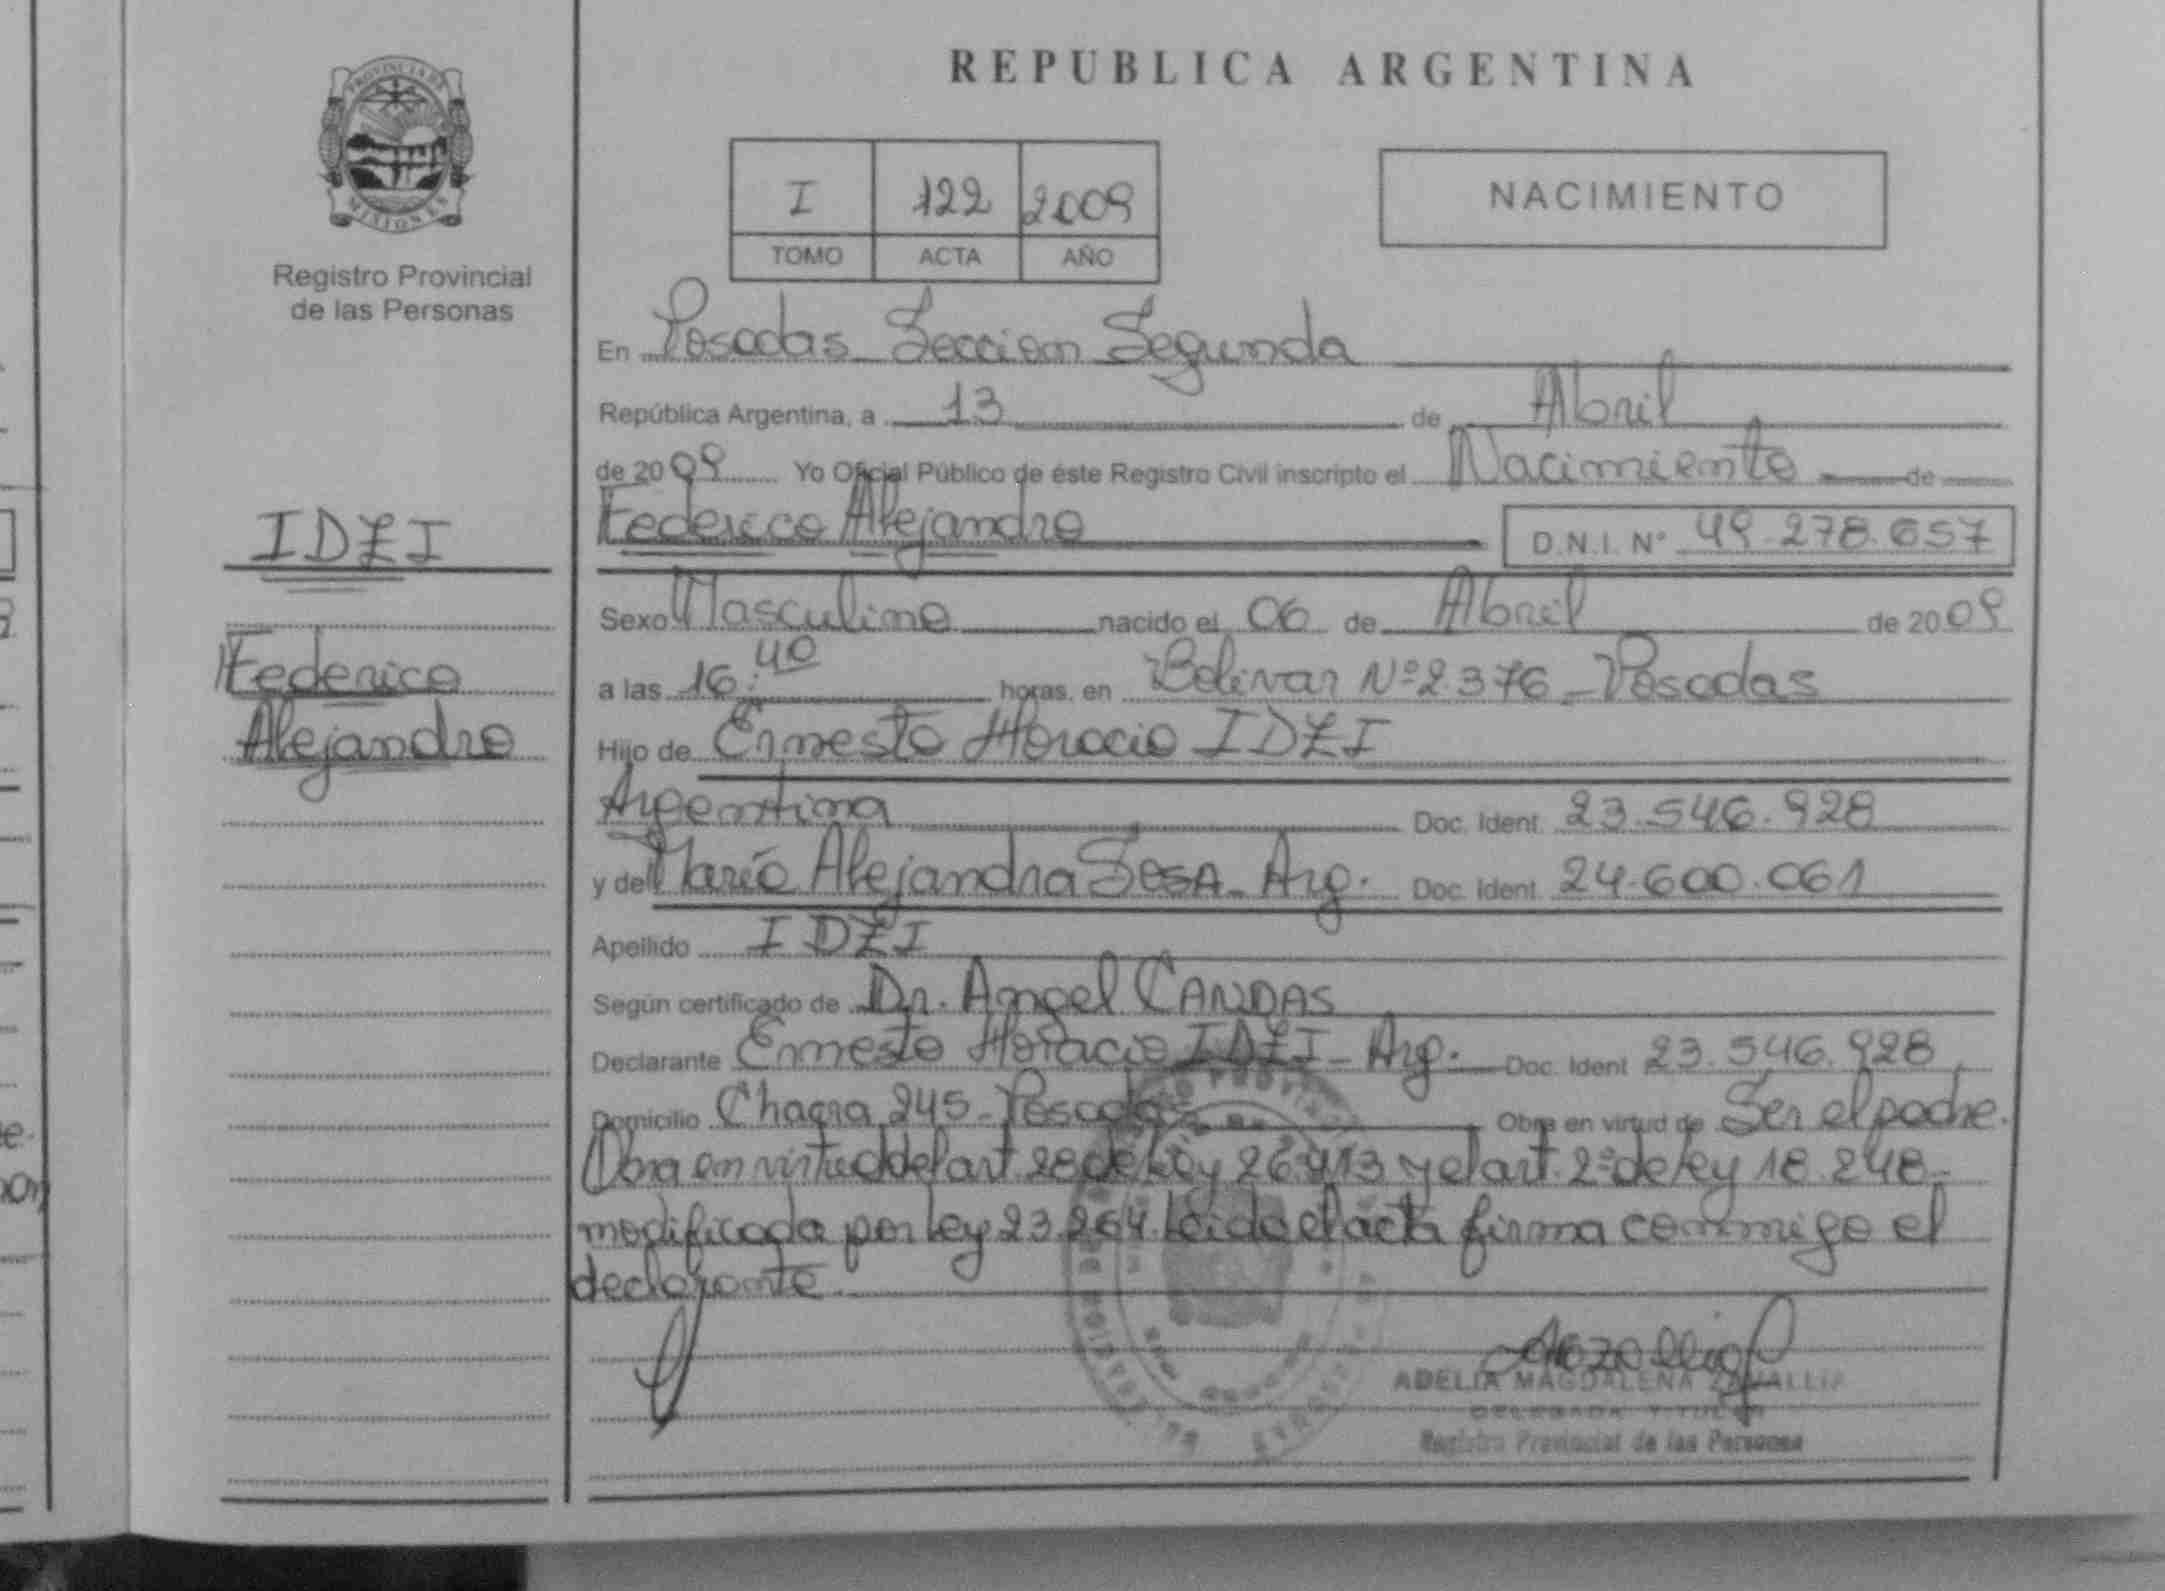 PROVINCIA DE
MISIONES
Registro Provincial
de las Personas
IDZI
Federico
Alejandro
REPUBLICA ARGENTINA
I 122 2009
TOMO ACTA AÑO
NACIMIENTO
En Posadas Seccion Segunda
República Argentina, a 13 de Abril
de 2009 Yo Oficial Público de éste Registro Civil inscripto el Nacimiento de
Federico Alejandro D.N.I. Nº 49.278.657
Sexo Masculino nacido el 06 de Abril de 2009
a las 16:40 horas. en Bolivar Nº 2.376 - Posadas
Hijo de Ernesto Horacio IDZI
Argentina Doc. Ident 23.546.928
y de María Alejandra SOSA - Arg. Doc. Ident 24.600.061
Apellido IDZI
Según certificado de Dr. Angel CANDAS
Declarante Ernesto Horacio IDZI - Arg. Doc. Ident 23.546.928
Domicilio Chacra 245 - Posadas Obra en virtud de Ser el padre.
Obra en virtud del art. 28 de Ley 26.413 y el art. 2º de Ley 18.248
modificada por Ley 23.264. Leida el acta firma conmigo el
declarante.
ADELIA MAGDALENA
DELEGADA TITULAR
Registro Provincial de las Personas